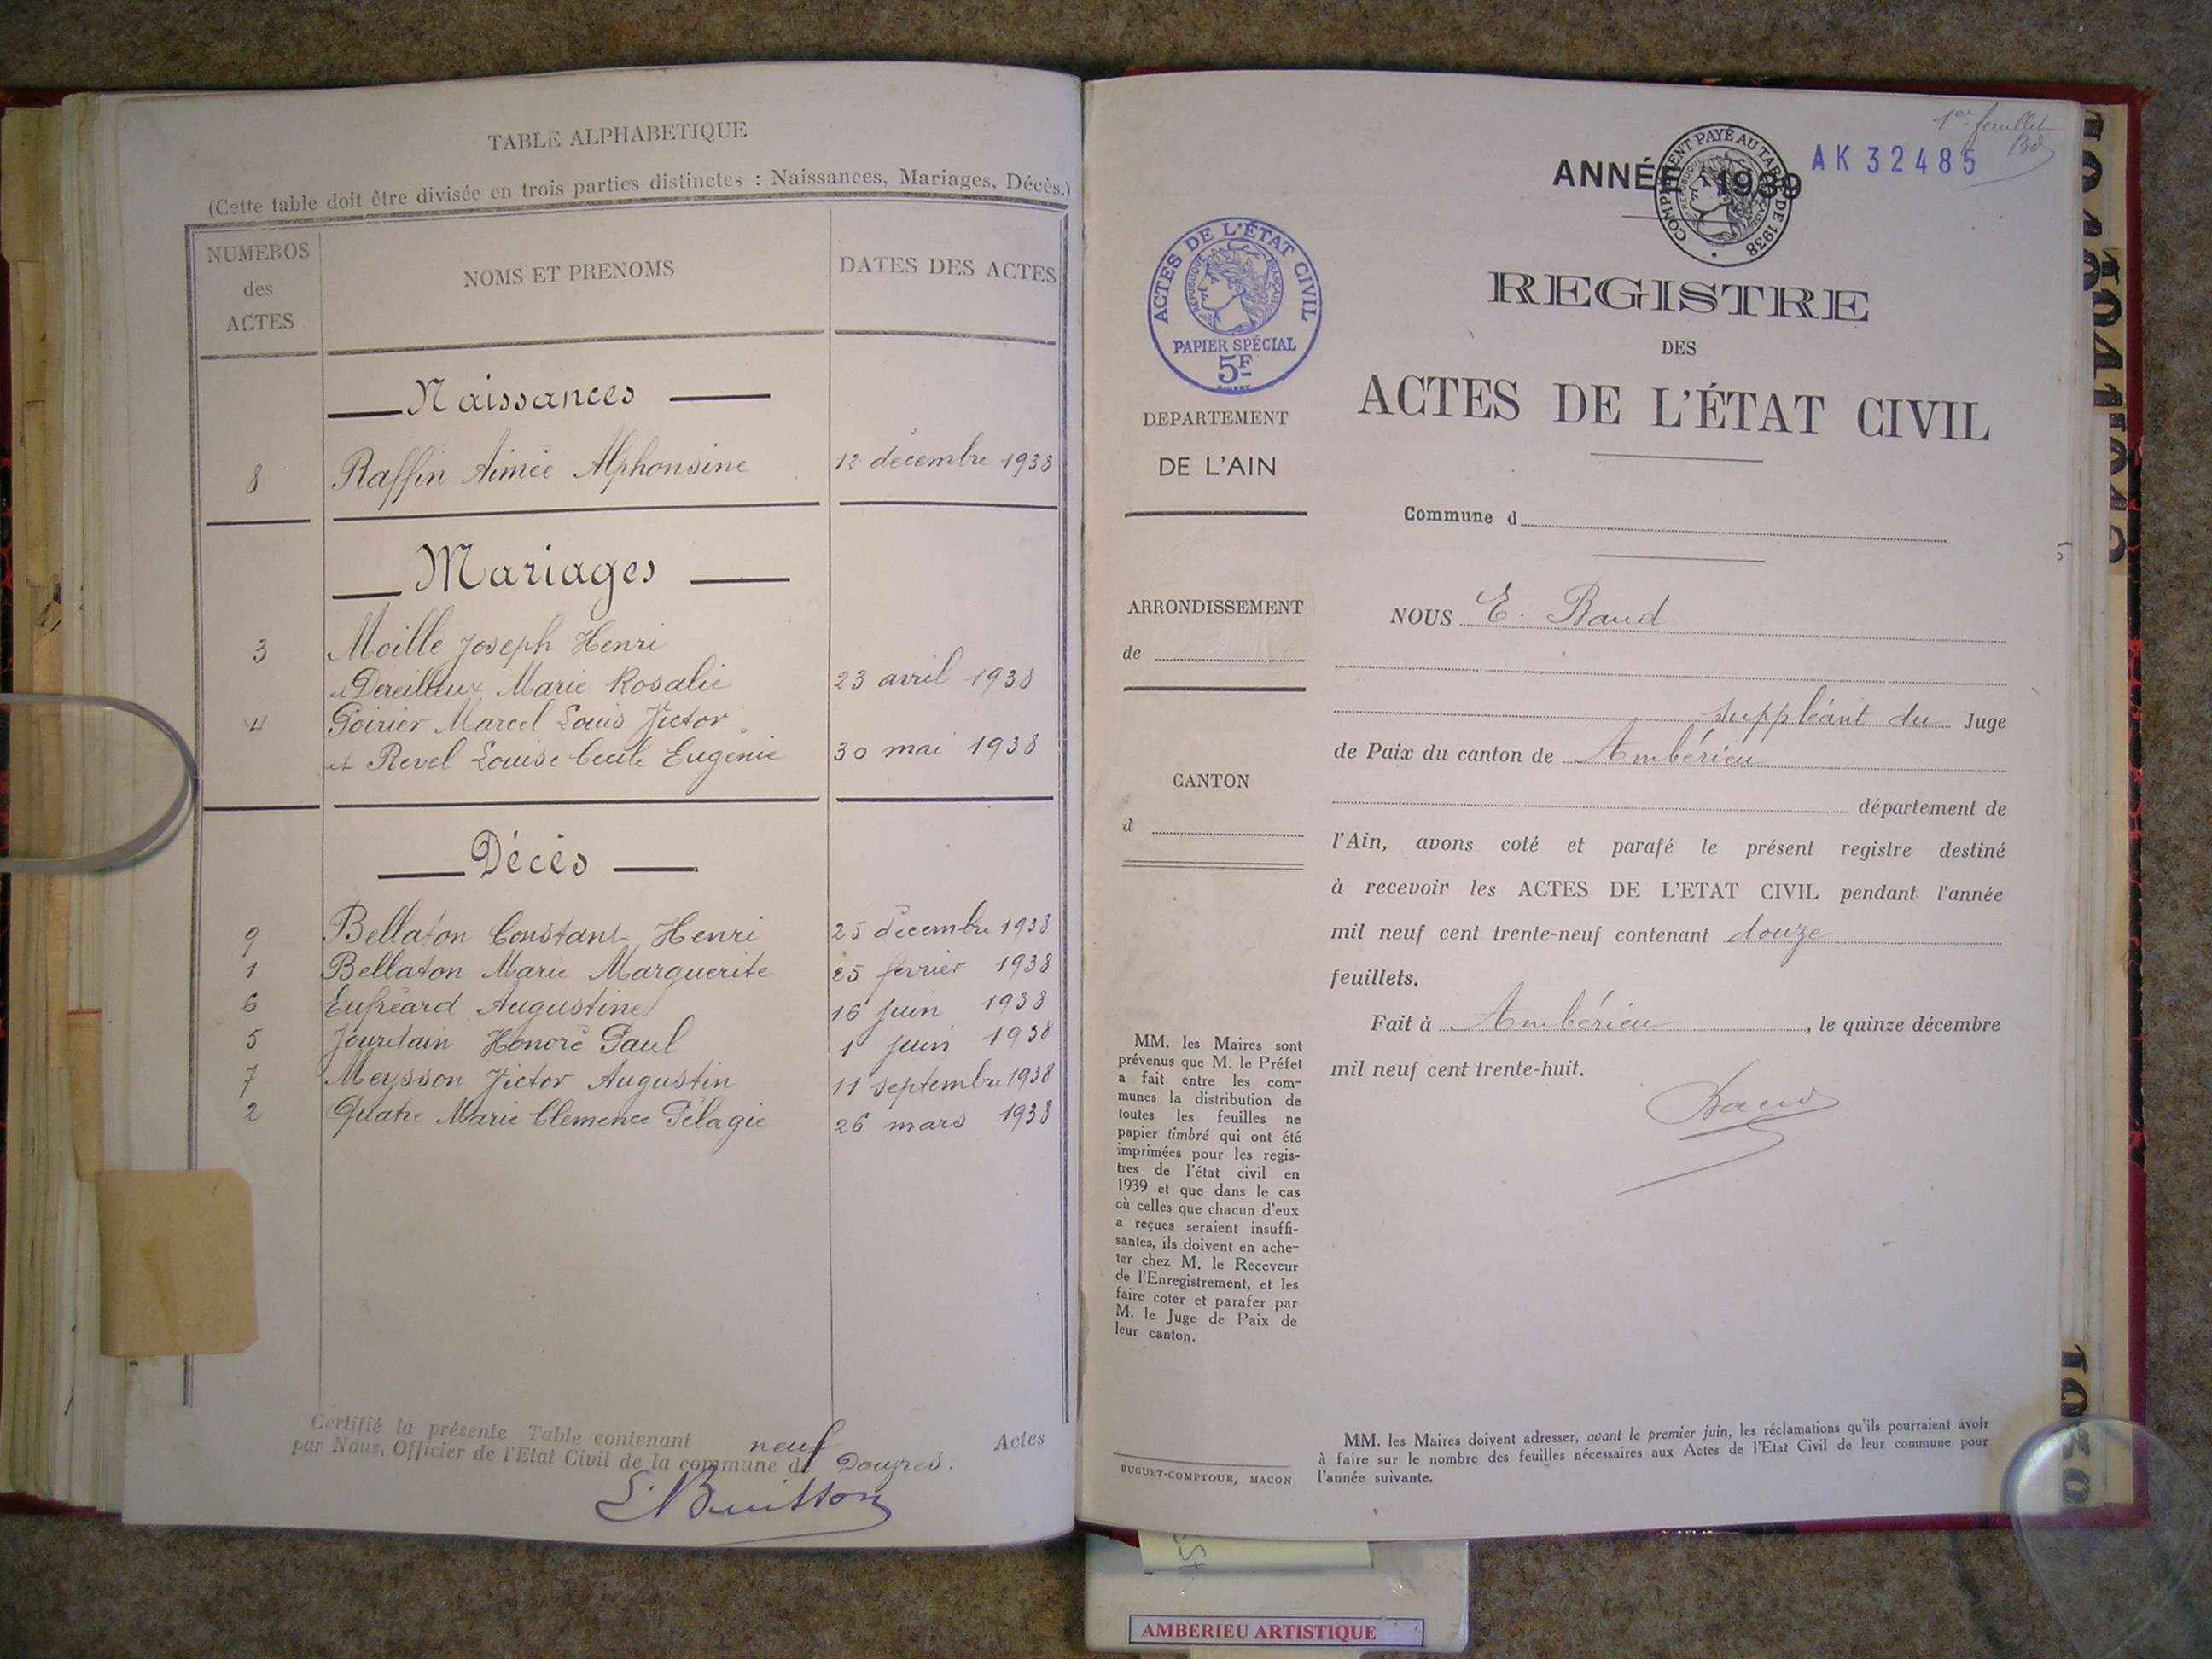 TABLE ALPHABETIQUE
(Cette table doit être divisée en trois parties distinctes : Naissances, Mariages, Décès.)
NUMEROS
des
ACTES
NOMS ET PRENOMS
DATES DES ACTES
Naissances
8 Raffin Aimée Alphonsine 12 décembre 1938
Mariages
3 Moille Joseph Henri
et Dereilleux Marie Rosalie 23 avril 1938
4 Poirier Marcel Louis Victor
et Revel Louise Cecile Eugenie 30 mai 1938
Décès
9 Bellaton Constant Henri 25 decembre 1938
1 Bellaton Marie Marguerite 25 fevrier 1938
6 Eufréard Augustine 16 juin 1938
5 Jourdain Honoré Paul 1 juin 1938
7 Meysson Victor Augustin 11 septembre 1938
2 Quatre Marie Clemence Pélagie 26 mars 1938
Certifié la présente Table contenant neuf Actes
par Nous, Officier de l'Etat Civil de la commune de Douvres.
L. Buisson
1er feuillet
Bd
ANNÉE 1939
COMPLEMENT PAYÉ AU TARIF DE 1938
AK 32485
ACTES DE L'ÉTAT CIVIL
REPUBLIQUE FRANÇAISE
PAPIER SPÉCIAL
5F
REGISTRE
DES
ACTES DE L'ÉTAT CIVIL
DEPARTEMENT
DE L'AIN
Commune d
ARRONDISSEMENT
de
CANTON
d
NOUS E. Baud
suppléant du Juge
de Paix du canton de Ambérieu
département de
l'Ain, avons coté et parafé le présent registre destiné
à recevoir les ACTES DE L'ETAT CIVIL pendant l'année
mil neuf cent trente-neuf contenant douze
feuillets.
Fait à Ambérieu, le quinze décembre
mil neuf cent trente-huit.
Baud
MM. les Maires sont
prévenus que M. le Préfet
a fait entre les com-
munes la distribution de
toutes les feuilles ne
papier timbré qui ont été
imprimées pour les regis-
tres de l'état civil en
1939 et que dans le cas
où celles que chacun d'eux
a reçues seraient insuffi-
santes, ils doivent en ache-
ter chez M. le Receveur
de l'Enregistrement, et les
faire coter et parafer par
M. le Juge de Paix de
leur canton.
BUGUET-COMPTOUR, MACON
MM. les Maires doivent adresser, avant le premier juin, les réclamations qu'ils pourraient avoir
à faire sur le nombre des feuilles nécessaires aux Actes de l'Etat Civil de leur commune pour
l'année suivante.
AMBERIEU ARTISTIQUE